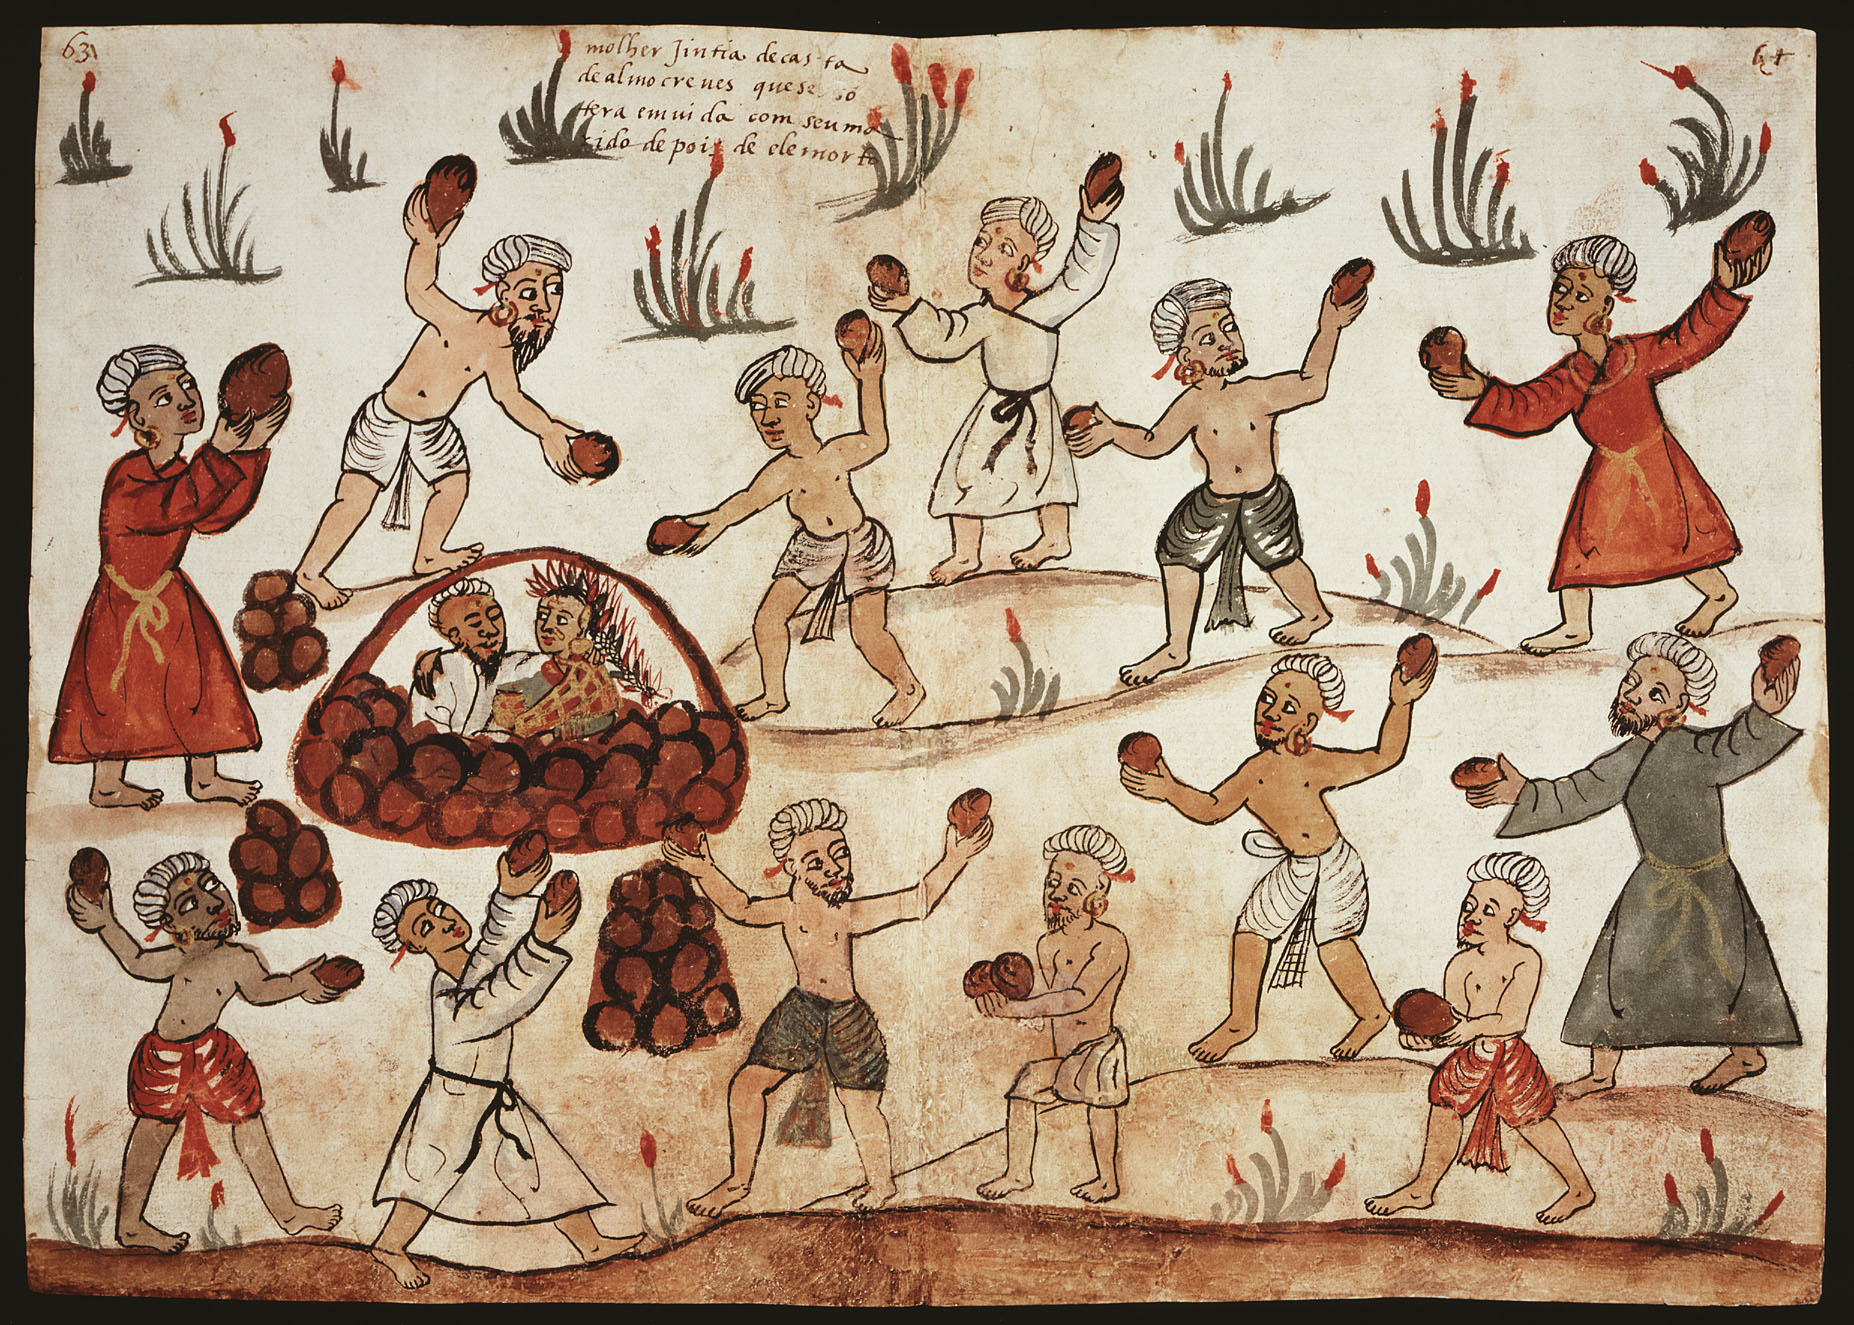 63
molher Jintia de casta
de almocreves que se so
tera em vida com seu ma
rido depois de ele morto
64